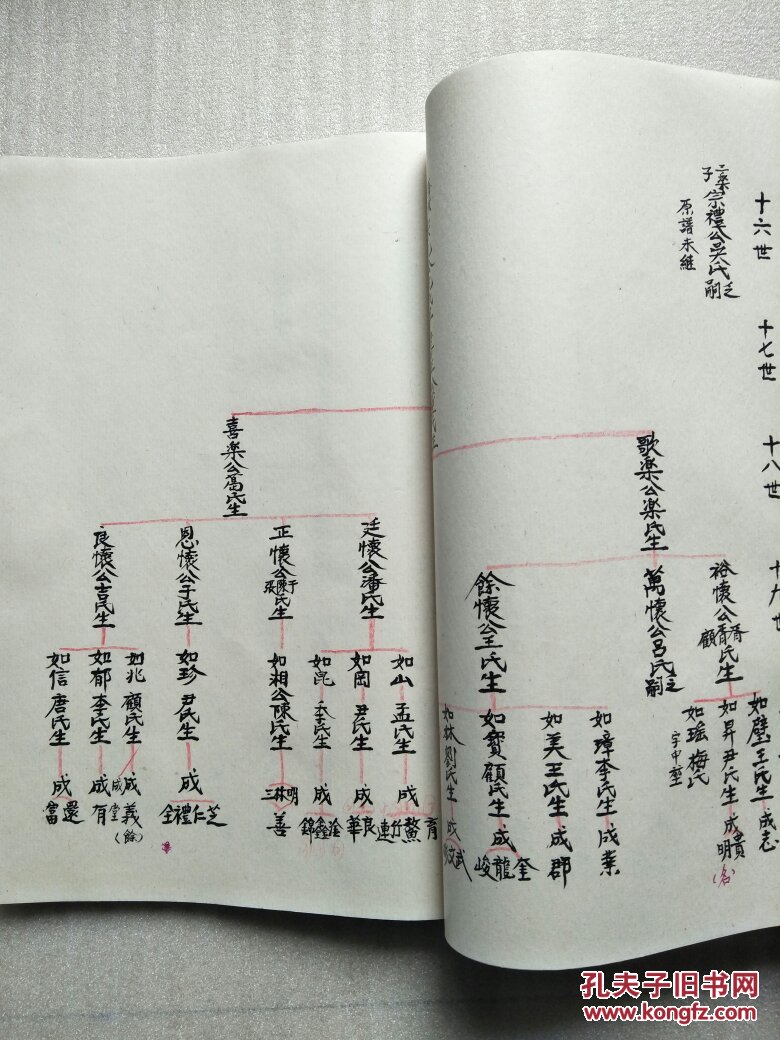 十六世
十七世
十八世
十九世
子
宗禮公吳氏乏嗣
原譜未继
歌楽公楽氏生
裕懷公
顧
氏生
萬懷公呂氏乏嗣
餘懷公
氏生
如璧王氏生成志
如昇尹氏生成
貴
明
(名)
如瑶梅氏
如璋李氏生成業
如美王氏生成郡
如寳顧氏生成
奎龍峻
如林劉氏生成
武文
喜楽公萬氏生
廷懷公潘氏生
正懷公
張陳于
氏生
恩懷公于氏生
良懷公吉氏生
如山孟氏生成
育鰲竹連
如岡尹氏生成
良華
如崑李氏生成
淦鑫錦
如相公陳氏生
明林三
善
如珍尹氏生成
芝仁禮全
如兆顧氏生
成義
(餘)
成堂
如郁李氏生成有
如信唐氏生成
還富
孔夫子旧书网
www.kongfz.com